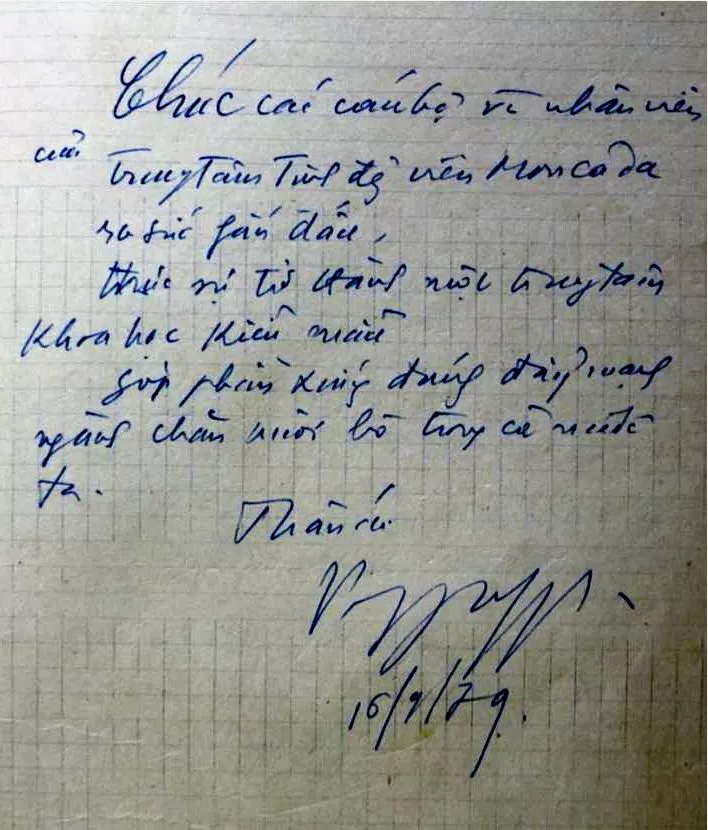 Chúc các cán bộ và nhân viên
của trung tâm tinh đg viên Moncada
ra sức phấn đấu,
thực sự trở thành một trung tâm
khoa học kiểu mẫu
góp phần xứng đáng đẩy mạnh
ngành chăn nuôi bò trong cả nước
ta.
Thân ái
15/9/79.